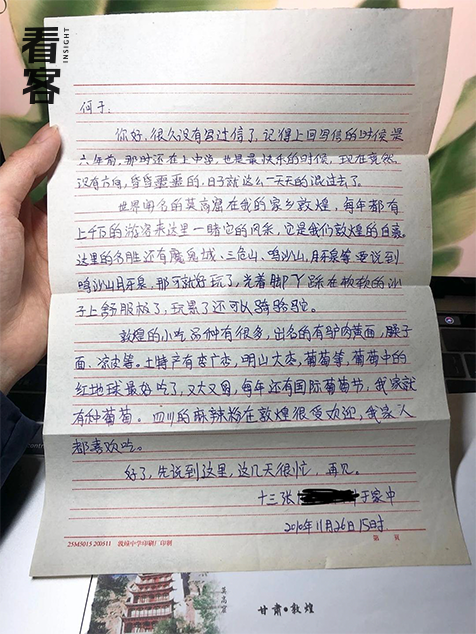 看客
INSIGHT
何于：
你好，很久没有写过信了，记得上回写信的时候是
六年前，那时还在上中学，也是最快乐的时候，现在竟然
没有方向，昏昏噩噩的，日子就这么一天天的混过去了。
世界闻名的莫高窟在我的家乡敦煌，每年都有
上千万的游客来这里一睹它的风采，它是我们敦煌的自豪。
这里的名胜还有魔鬼城、三危山、鸣沙山，月牙泉等要说到
鸣沙山月牙泉，那可就好玩了，光着脚丫踩在软软的沙
子上舒服极了，玩累了还可以骑骑骆驼。
敦煌的小吃品种有很多，出名的有驴肉黄面，臊子
面、凉皮等。土特产有李广杏，明山大枣，葡萄等，葡萄中的
红地球最好吃了，又大又圆，每年还有国际葡萄节，我家就
有种葡萄。四川的麻辣粉在敦煌很受欢迎，我家人
都喜欢吃。
好了，先说到这里，这几天很忙，再见。
十三张 于家中
2010年11月26日15时
25M5015 200511 敦煌中学印刷厂印制
第 页
莫高窟
甘肃·敦煌